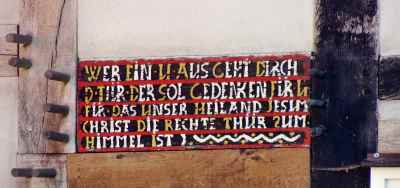 WER EIN U AUS GEHT DIRCH
D TÜR DER SOL GEDENKEN FÜR U
FÜR DAS UNSER HEILAND JESUM
CHRIST DIE RECHTE THÜR ZUM
HIMMEL IST